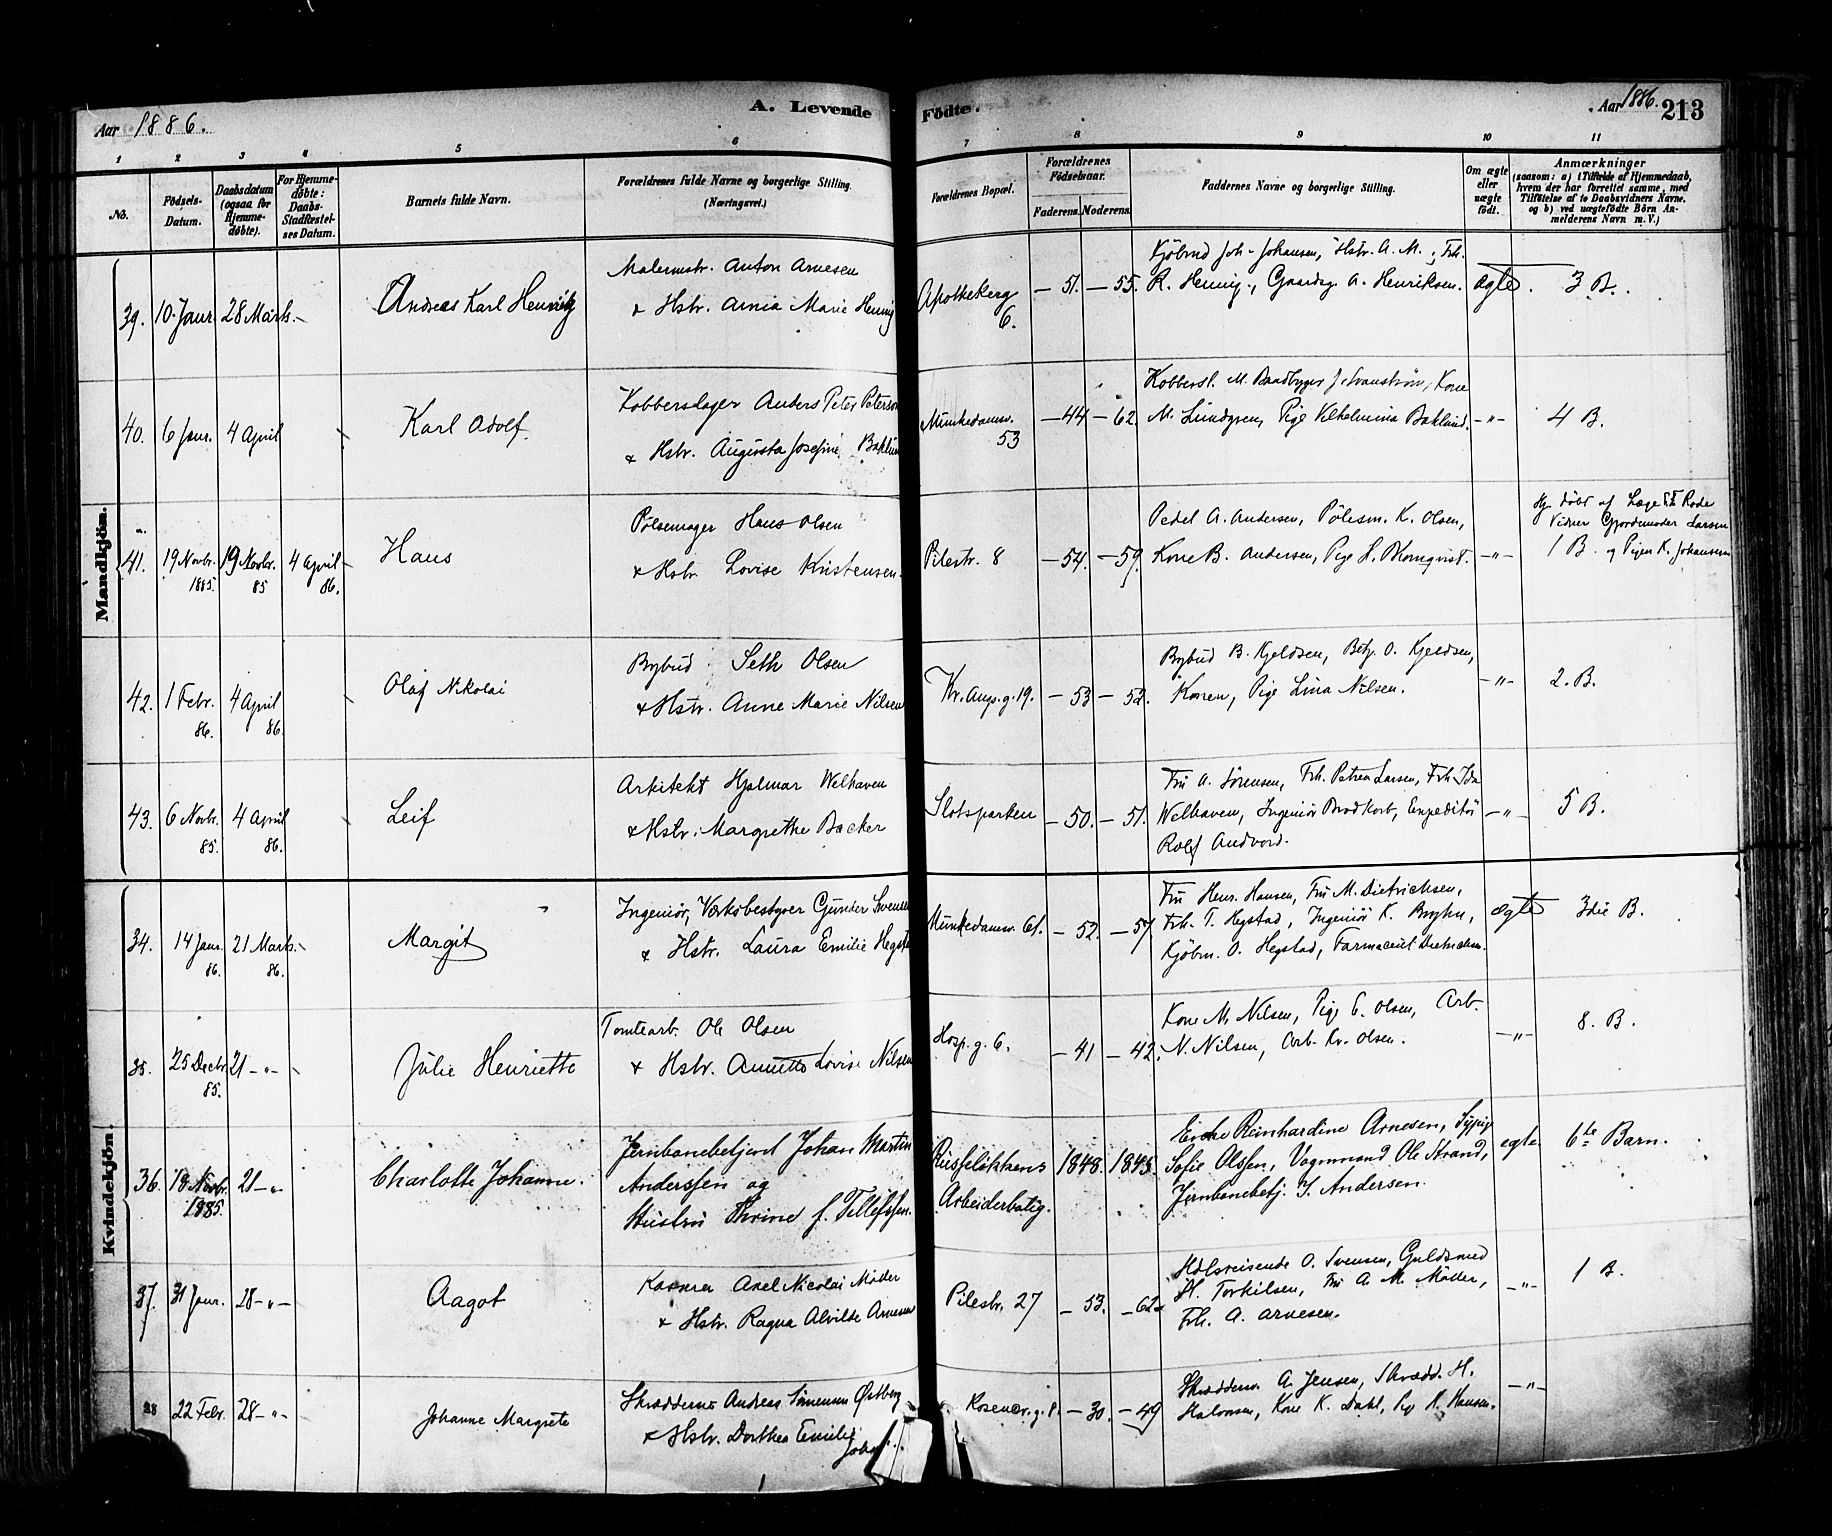 Aar 1886.
A. Levende Födte.
Aar 1886. 213
1 2 3 4 5 6 7 8 9 10 11
No.
Födsels-
Datum.
Daabsdatum
(ogsaa for
Hjemme-
døbte).
For Hjemme-
døbte:
Daabs-
Stadfæstel-
ses Datum.
Barnets fulde Navn.
Forældrenes fulde Navne og borgerlige Stilling.
(Næringsvei.)
Forældrenes Bopæl.
Forældrenes
Födselsaar.
Faderens. Moderens.
Faddernes Navne og borgerlige Stilling.
Om ægte
eller
uægte
født.
Anmærkninger
(saasom: a) i Tilfælde af Hjemmedaab,
hvem der har forrettet samme, med
Tilföielse af to Daabsvidners Navne.
og b) ved uægtefödte Börn An-
melderens Navn m. V.)
Mandkjön.
39. 10 Janr. 28 Marts. Andreas Karl
Malermstr. Anton Arnesen
& Hstr. Marie Hennig
Apothekerg
6.
51. 55.
Joh. Johansen, Hstr. A. M., Frk.
R. Hennig, Gaardsg. A. Henriksen.
ægte. 3 B.
40. 6 Janr. 4 April Karl Adolf.
Kobberslager Anders Peter Peterson
& Hstr. Augusta Josefine
Munkedamsv.
53
44 62.
Kobbersl. M. Baadbygger J. Svanström, Kone
M. Lundgren, Pige Vilhelmina Baklund.
-"- 4 B.
41. 19 Novbr. 1885. 19 Novbr. 85 4 April 86. Hans
Pølsemager Hans Olsen
& Hstr. Lovise Kristensen.
Pilestr. 8
54. 59.
Pedel A. Andersen, Pölsem. K. Olsen,
Kone B. Andersen, Pige H. Blomqvist.
-"-
Hj. døbt af Læge Rode
Vidner Gjordemoder Larsen
1 B. og Pigen K. Johansen
42. 1 Febr. 86. 4 April 86. Olaf Nikolai
Bybud Seth Olsen
& Hstr. Anne Marie Nilsen
Kr. Aug. g. 19.
53 52.
Bybud B. Kjeldsen, Betj. O. Kjeldsen,
Konen, Pige Lina Nilsen.
-"- 2. B.
43. 6 Novbr. 85. 4 April 86. Leif
Arkitekt Hjalmar Welhaven
& Hstr. Margrethe Backer
Slotsparken
50. 51.
Fru A. Sörensen, Frk. Petrea Larsen, Frk. Ida
Welhaven, Ingeniör Brodkorb, Expeditör
Rolf Andvord.
-"- 5 B.
Kvindekjön.
34. 14 Janr. 86. 21 Marts. 86. Margit
Ingeniör, Værksbestyrer Gunder Svensen
& Hstr. Laura Emilie Hegstad
Munkedamsv. 61.
52. 57
Fru Henr. Hansen, Fru M. Dietrichsen,
Frk. T. Hegstad, Ingeniör K. Bryhn,
Kjöbm. O. Hegstad, Farmaceut Dietrichsen.
ægte 3die B.
35. 25 Decbr 85. 21 -"- Julie Henriette
Tomtearb. Ole Olsen
& Hstr. Annette Lovise Nilsen
Hosp. g. 6.
41 42.
Kone M. Nilsen, Pige E. Olsen, Arb.
N. Nilsen, Arb. Kr. Olsen.
-"- 8. B.
36. 18 Novbr. 1885. 21 -"- Charlotte Johanne.
Jernbanebetjent Johan Martin
Anderssen og
Hustru Thrine f. Tellefssen.
Ruseløkkens
Arbeiderbolig.
1848. 1845.
Enke Reinhardine Arnesen, Sypig
Sofie Olssen, Vognmand Ole Strand,
Jernbanebetj. J. Andersen.
egte 6te Barn.
37. 31 Janr. 28 -"- Aagot
Kasserer Axel Nicolai Møller
& Hstr. Ragna Alvilde Arnesen
Pilestr. 27
53. 62
Hdlsreisende O. Svensen, Guldsmed
H. Torkilsen, Fru A. M. Møller,
Frk. A. Arnesen.
-"- 1 B.
38 22 Febr. 28 -"- Johanne Margrete
Skræddermr Andreas Sörensen Østberg
& Hstr. Dorthea Emilie
Rosencr. g. 8.
30. 49
Skræddersv. A. Jensen, Skrædd. H.
Halvorsen, Kone K. Dahl, Pige A. Hansen.
-"-